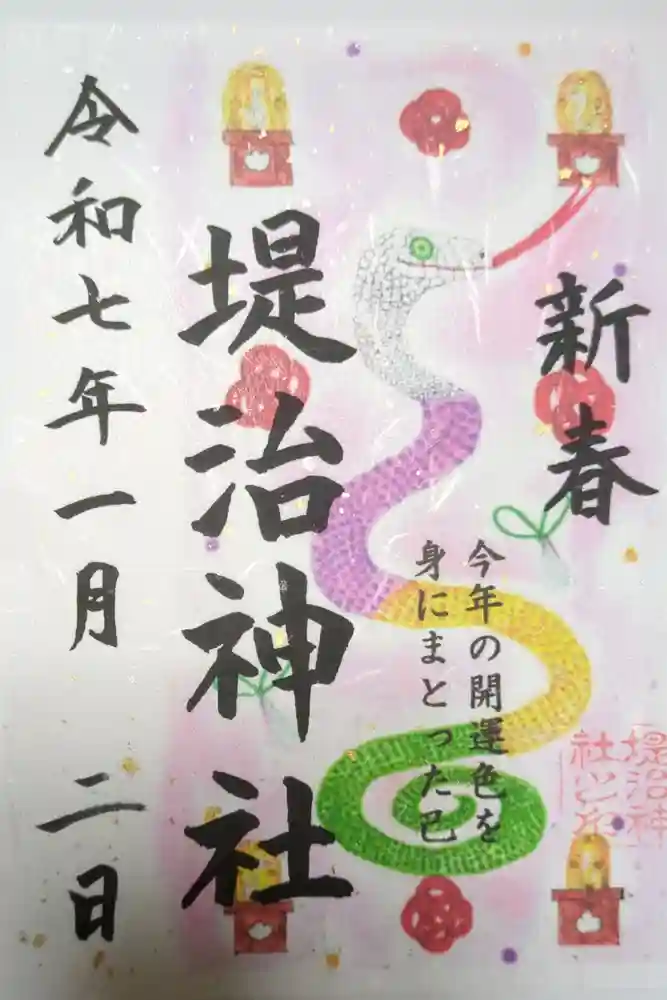 新春
今年の開運色を
身にまとった巳
堤治神社
令和七年一月 二日
堤治神